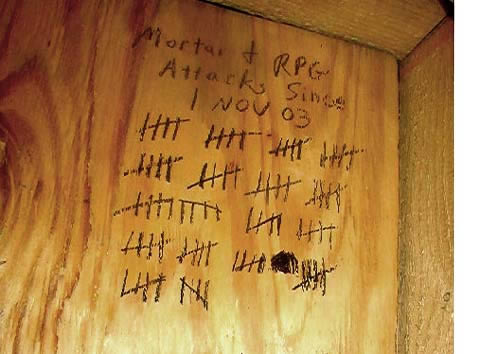 Mortar + RPG
Attacks Since
1 NOV 03